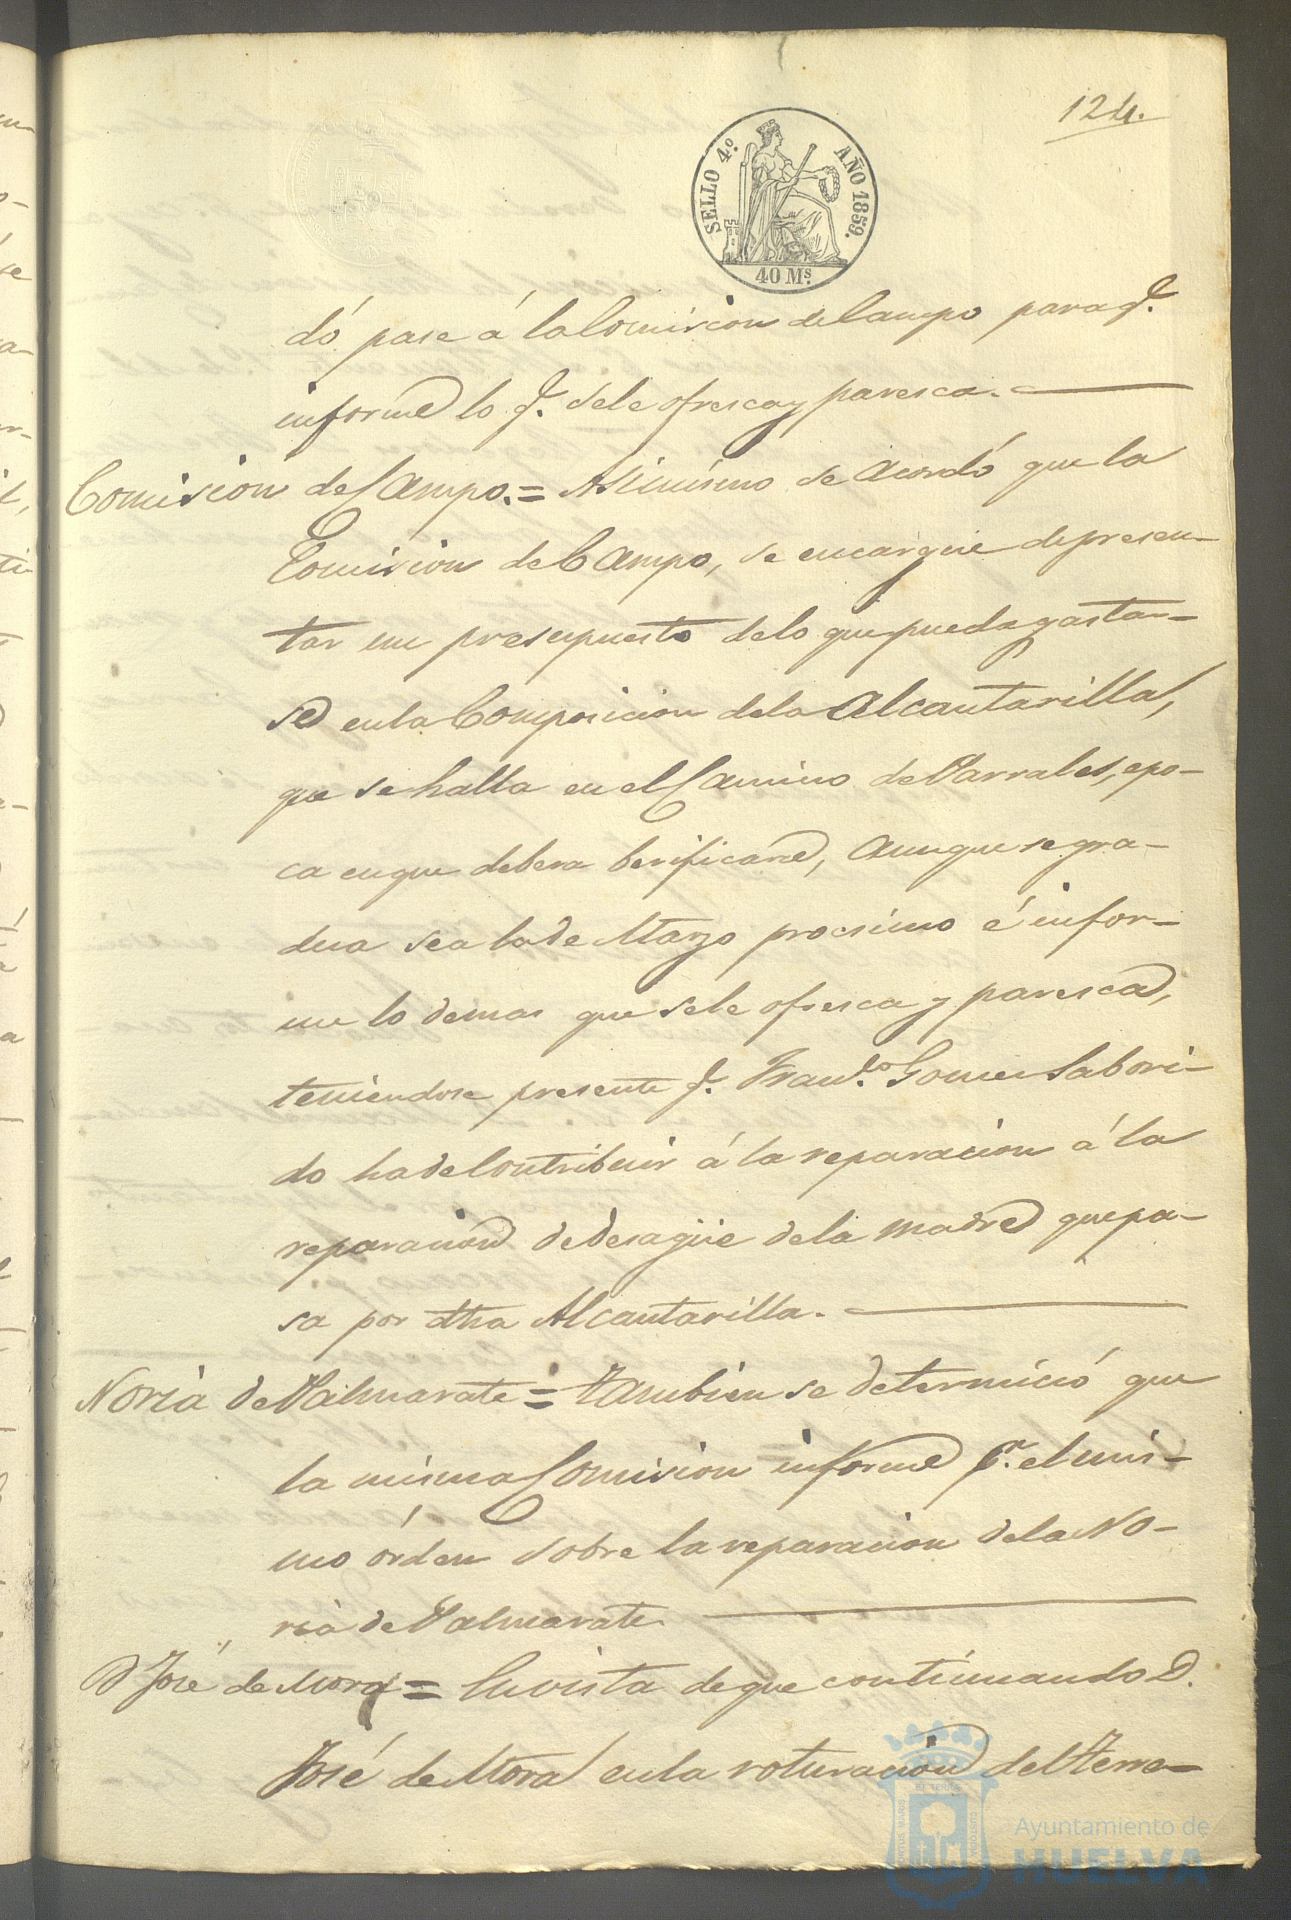 124.
SELLO 4º. AÑO 1859.
40 Ms.
dó pase á la Comision de Campo para q.e
informe lo q.e sele ofresca y paresca.
Comision de Campo. = Asimismo se acordó que la
Comision de Campo, se encargue de presen-
tar un presupuesto delo que pueda gastar-
se en la Composicion dela Alcantarilla,
que se halla en el Camino de Marrales, epo-
ca en que debera berificarse, aunque se gra-
dua sea la de Marzo procsimo é infor-
me lo demas que sele ofresca y paresca,
teniendose presente q.e Fran.co Gomez Sabori-
do ha de Contribuir á la reparacion á la
reparacion de desagüe dela madre que pa-
sa por dha Alcantarilla.
Noria de Valmarate = Tambien se determició que
la misma Comision informe p.r el mis-
mo órden sobre la reparacion dela No-
ria de Valmarate.
D José de Mora = En vista de que continuando D.
José de Mora en la roturacion del Terre-
Ayuntamiento de
HUELVA